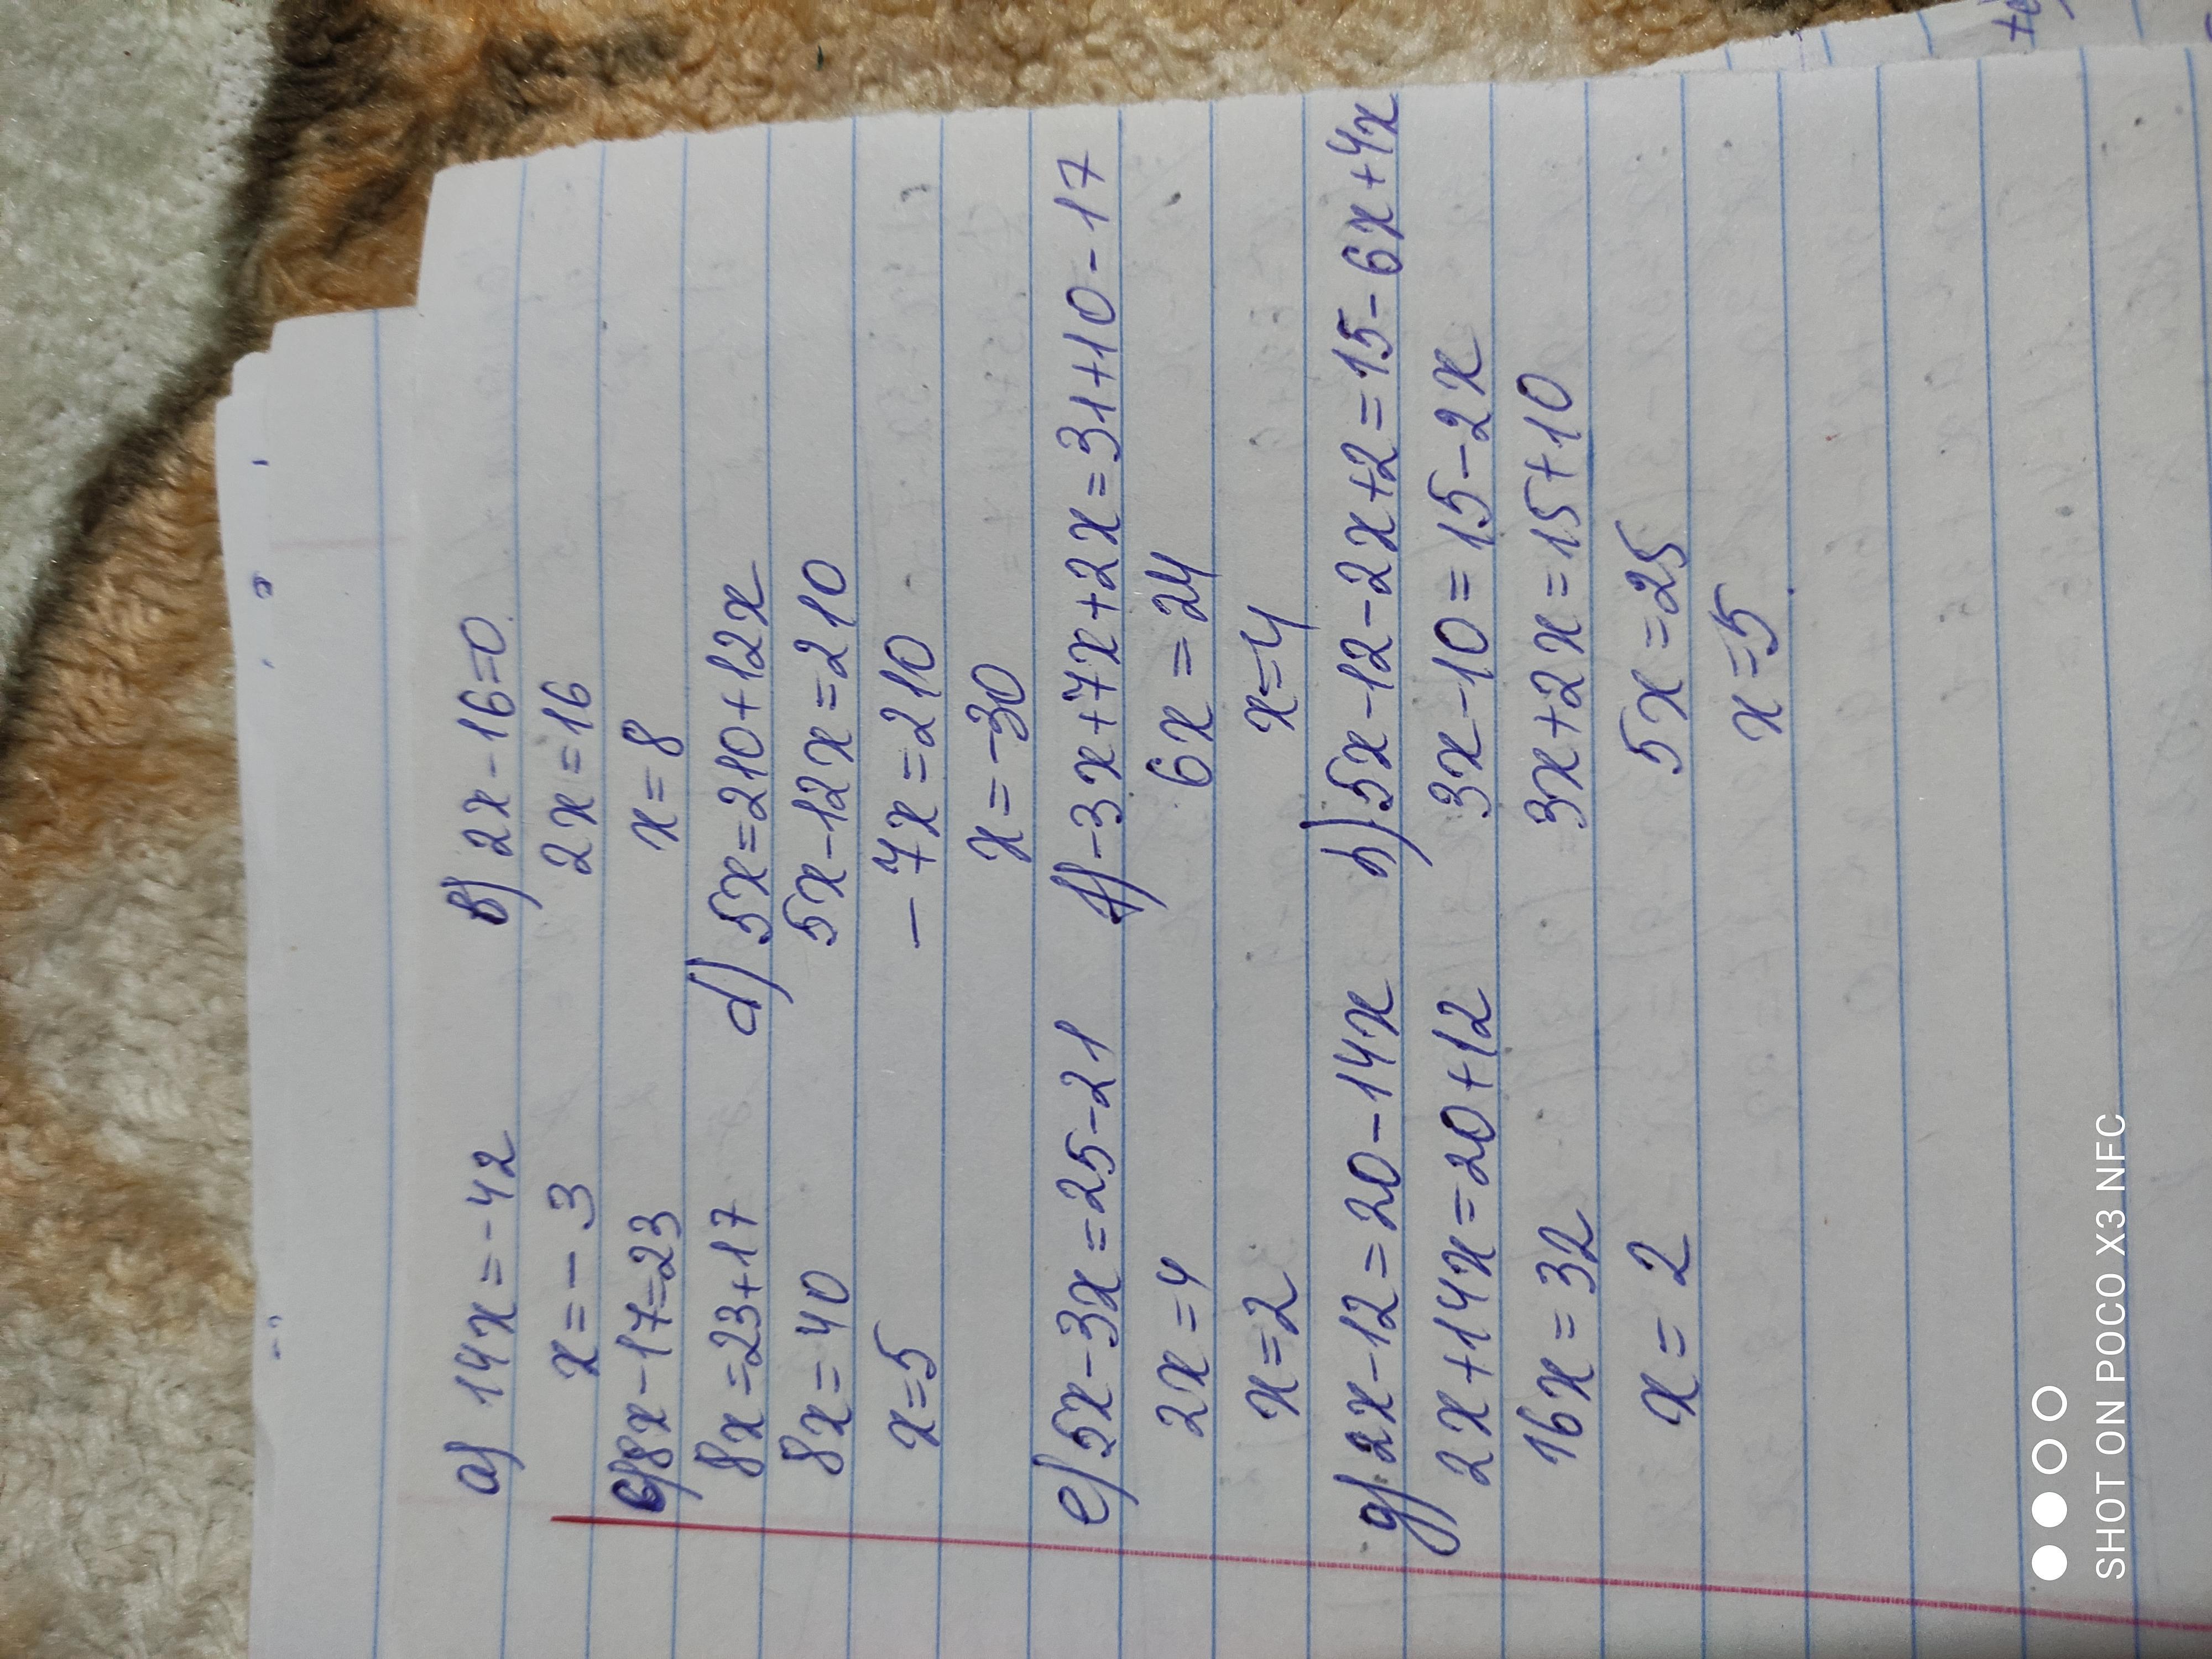 a) 14x=-42
x=-3
b) 2x-16=0
2x=16
x=8
c) 8x-17=23
8x=23+17
8x=40
x=5
d) 5x=210+12x
5x-12x=210
-7x=210
x=-30
e) 5x-3x=25-21
2x=4
x=2
f) -3x+7x+2x=31+10-17
6x=24
x=4
g) 2x-12=20-14x
2x+14x=20+12
16x=32
x=2
h) 5x-12-2x+2=15-6x+4x
3x-10=15-2x
3x+2x=15+10
5x=25
x=5
SHOT ON POCO X3 NFC